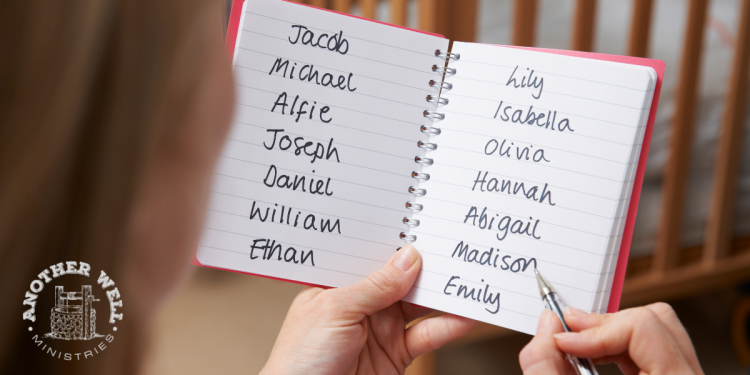 Jacob
Michael
Alfie
Joseph
Daniel
William
Ethan
Lily
Isabella
Olivia
Hannah
Abigail
Madison
Emily
ANOTHER WELL
MINISTRIES